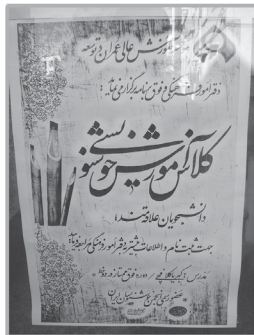 موسسه آموزش عالی عمران و توسعه
دفتر امور فرهنگی و فوق برنامه برگزار می نماید:
کلاس آموزش خوشنویسی
دانشجویان علاقمند
جهت ثبت نام و اطلاعات بیشتر به دفتر امور فرهنگی مراجعه نمایند
مدرس: دوره فوق ممتاز
عضو رسمی انجمن خوشنویسان ایران